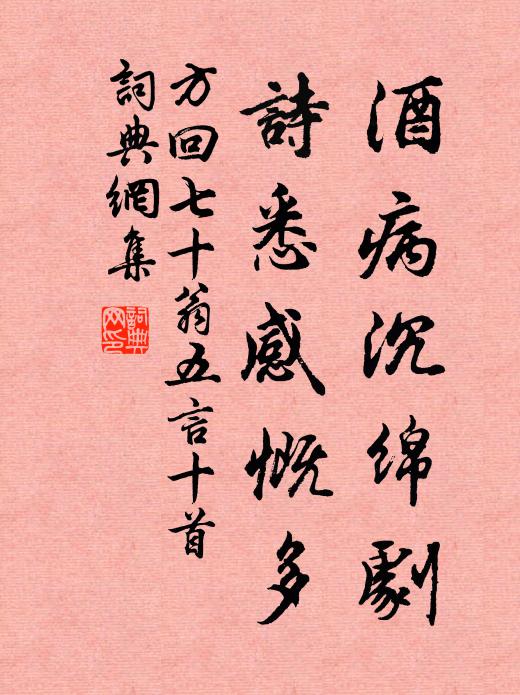 酒病沉绵劇
詩悉感慨多
方回七十翁五言十首
詞典網集
詞典网印